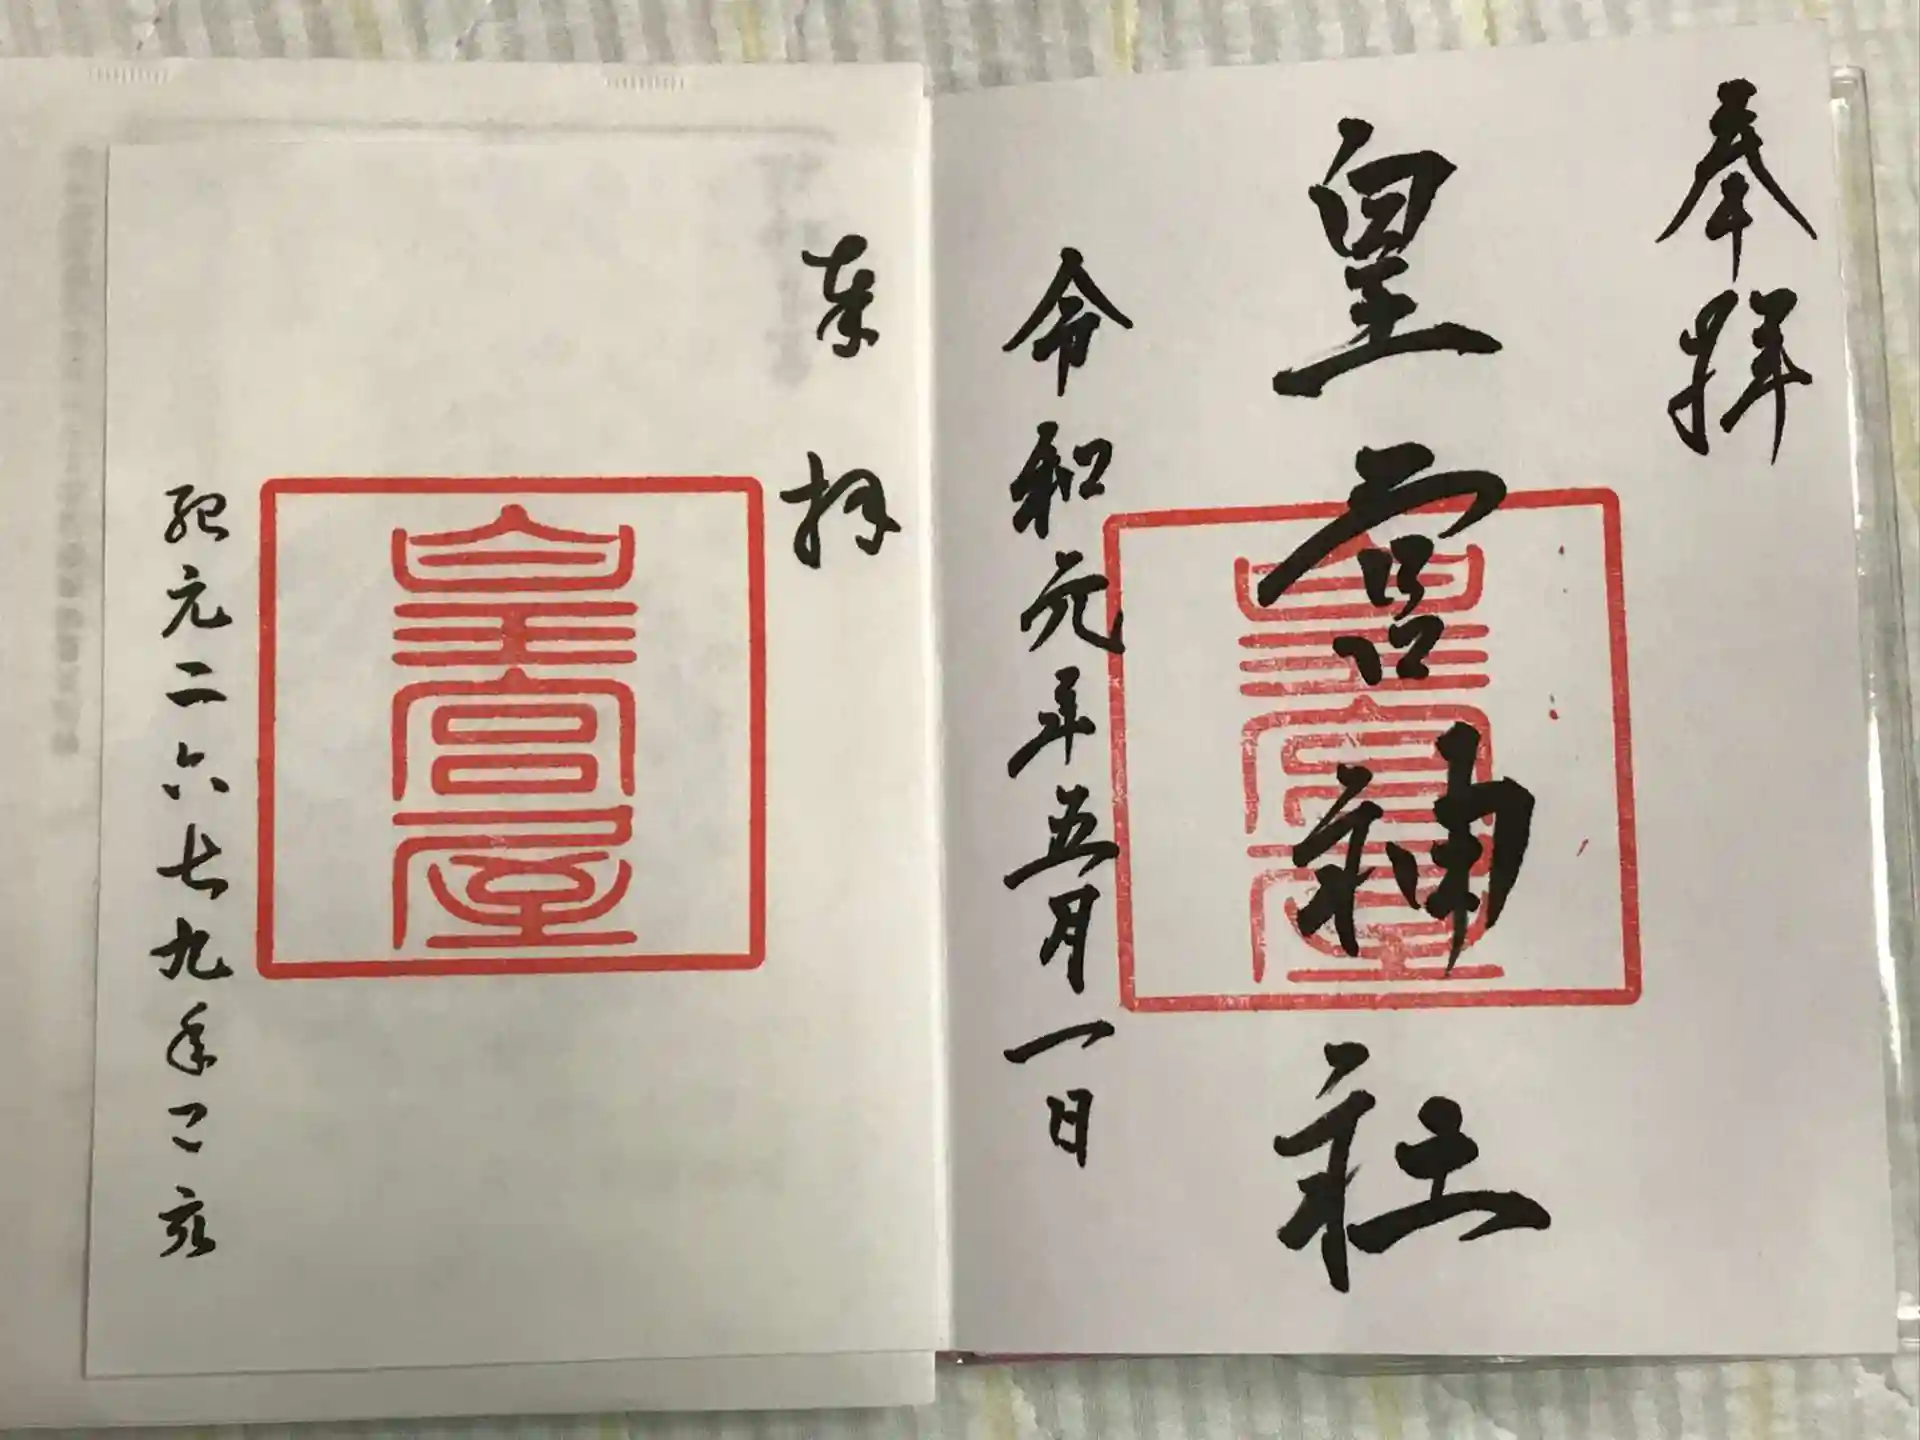 奉拝
皇宮神社
皇宮屋
令和元年五月一日
奉拝
皇宮屋
紀元二六七九年己亥